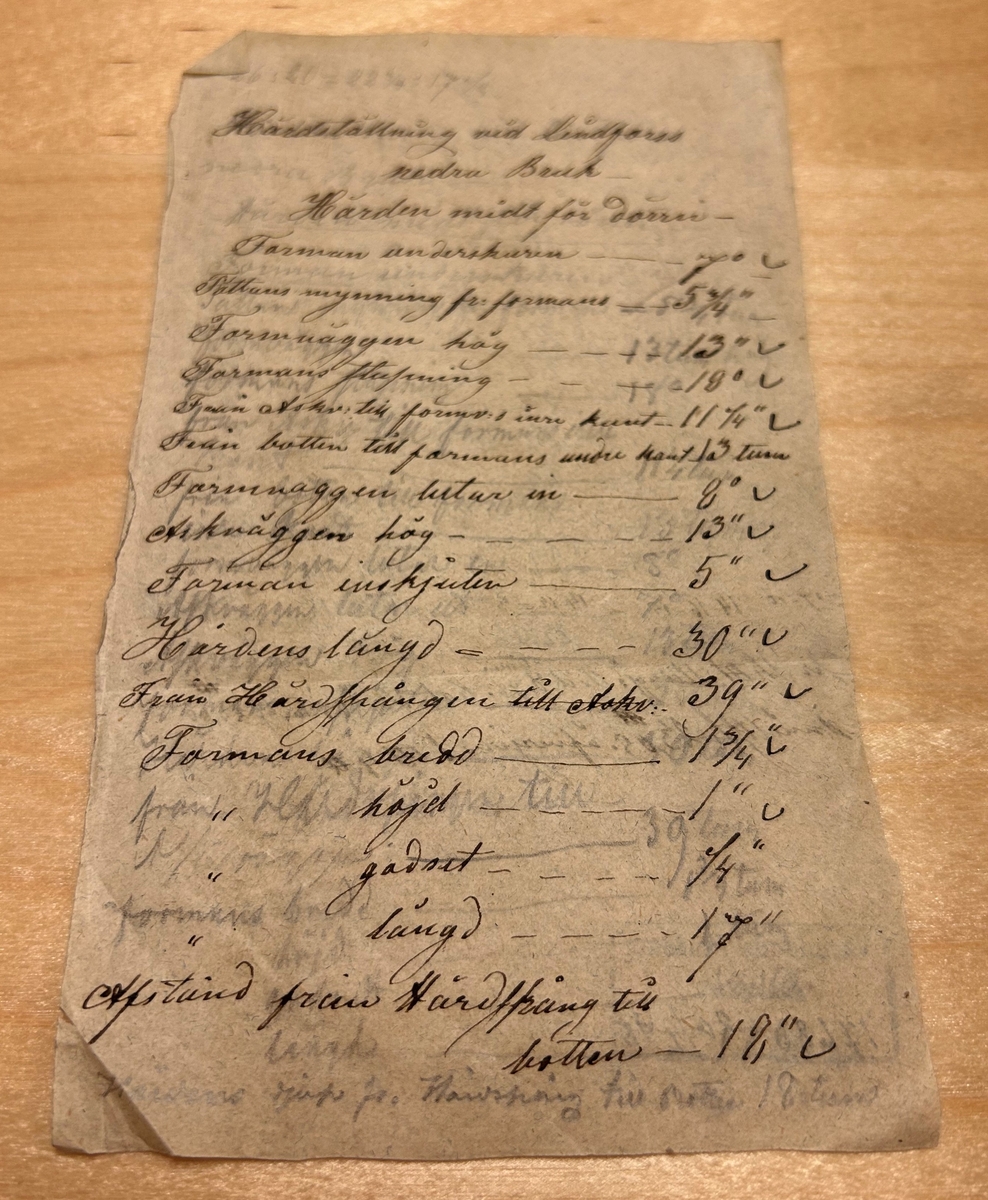 Härdställning vid Lindforss
nedra Bruk —
Härden midt för dörrn —
Forman underskuren — 7° ✓
Tättans mynning fr: formans — 5 3/4"
Formväggen hög — — — 13" ✓
Formans stupning - - — 18° ✓
Från Askv: till formv:s inre kant — 11 1/4" ✓
Från botten till formans undre kant 13 tum
Formväggen lutar in — 8° ✓
Askväggen hög - — — — 13" ✓
Forman inskjuten — 5" ✓
Härdens längd = — — — 30" ✓
Från Härdspången till Askv: 39" ✓
Formans bredd — 1 3/4" ✓
" höjd — — — 1" ✓
" godset — — — 1/4"
" längd — — — 17"
Afstånd från Härdspång till
botten — 18" ✓
från Härdspången till
39 tum
formans bredd
längd
Härdens djup fr. Härdspång till botten 18 tum